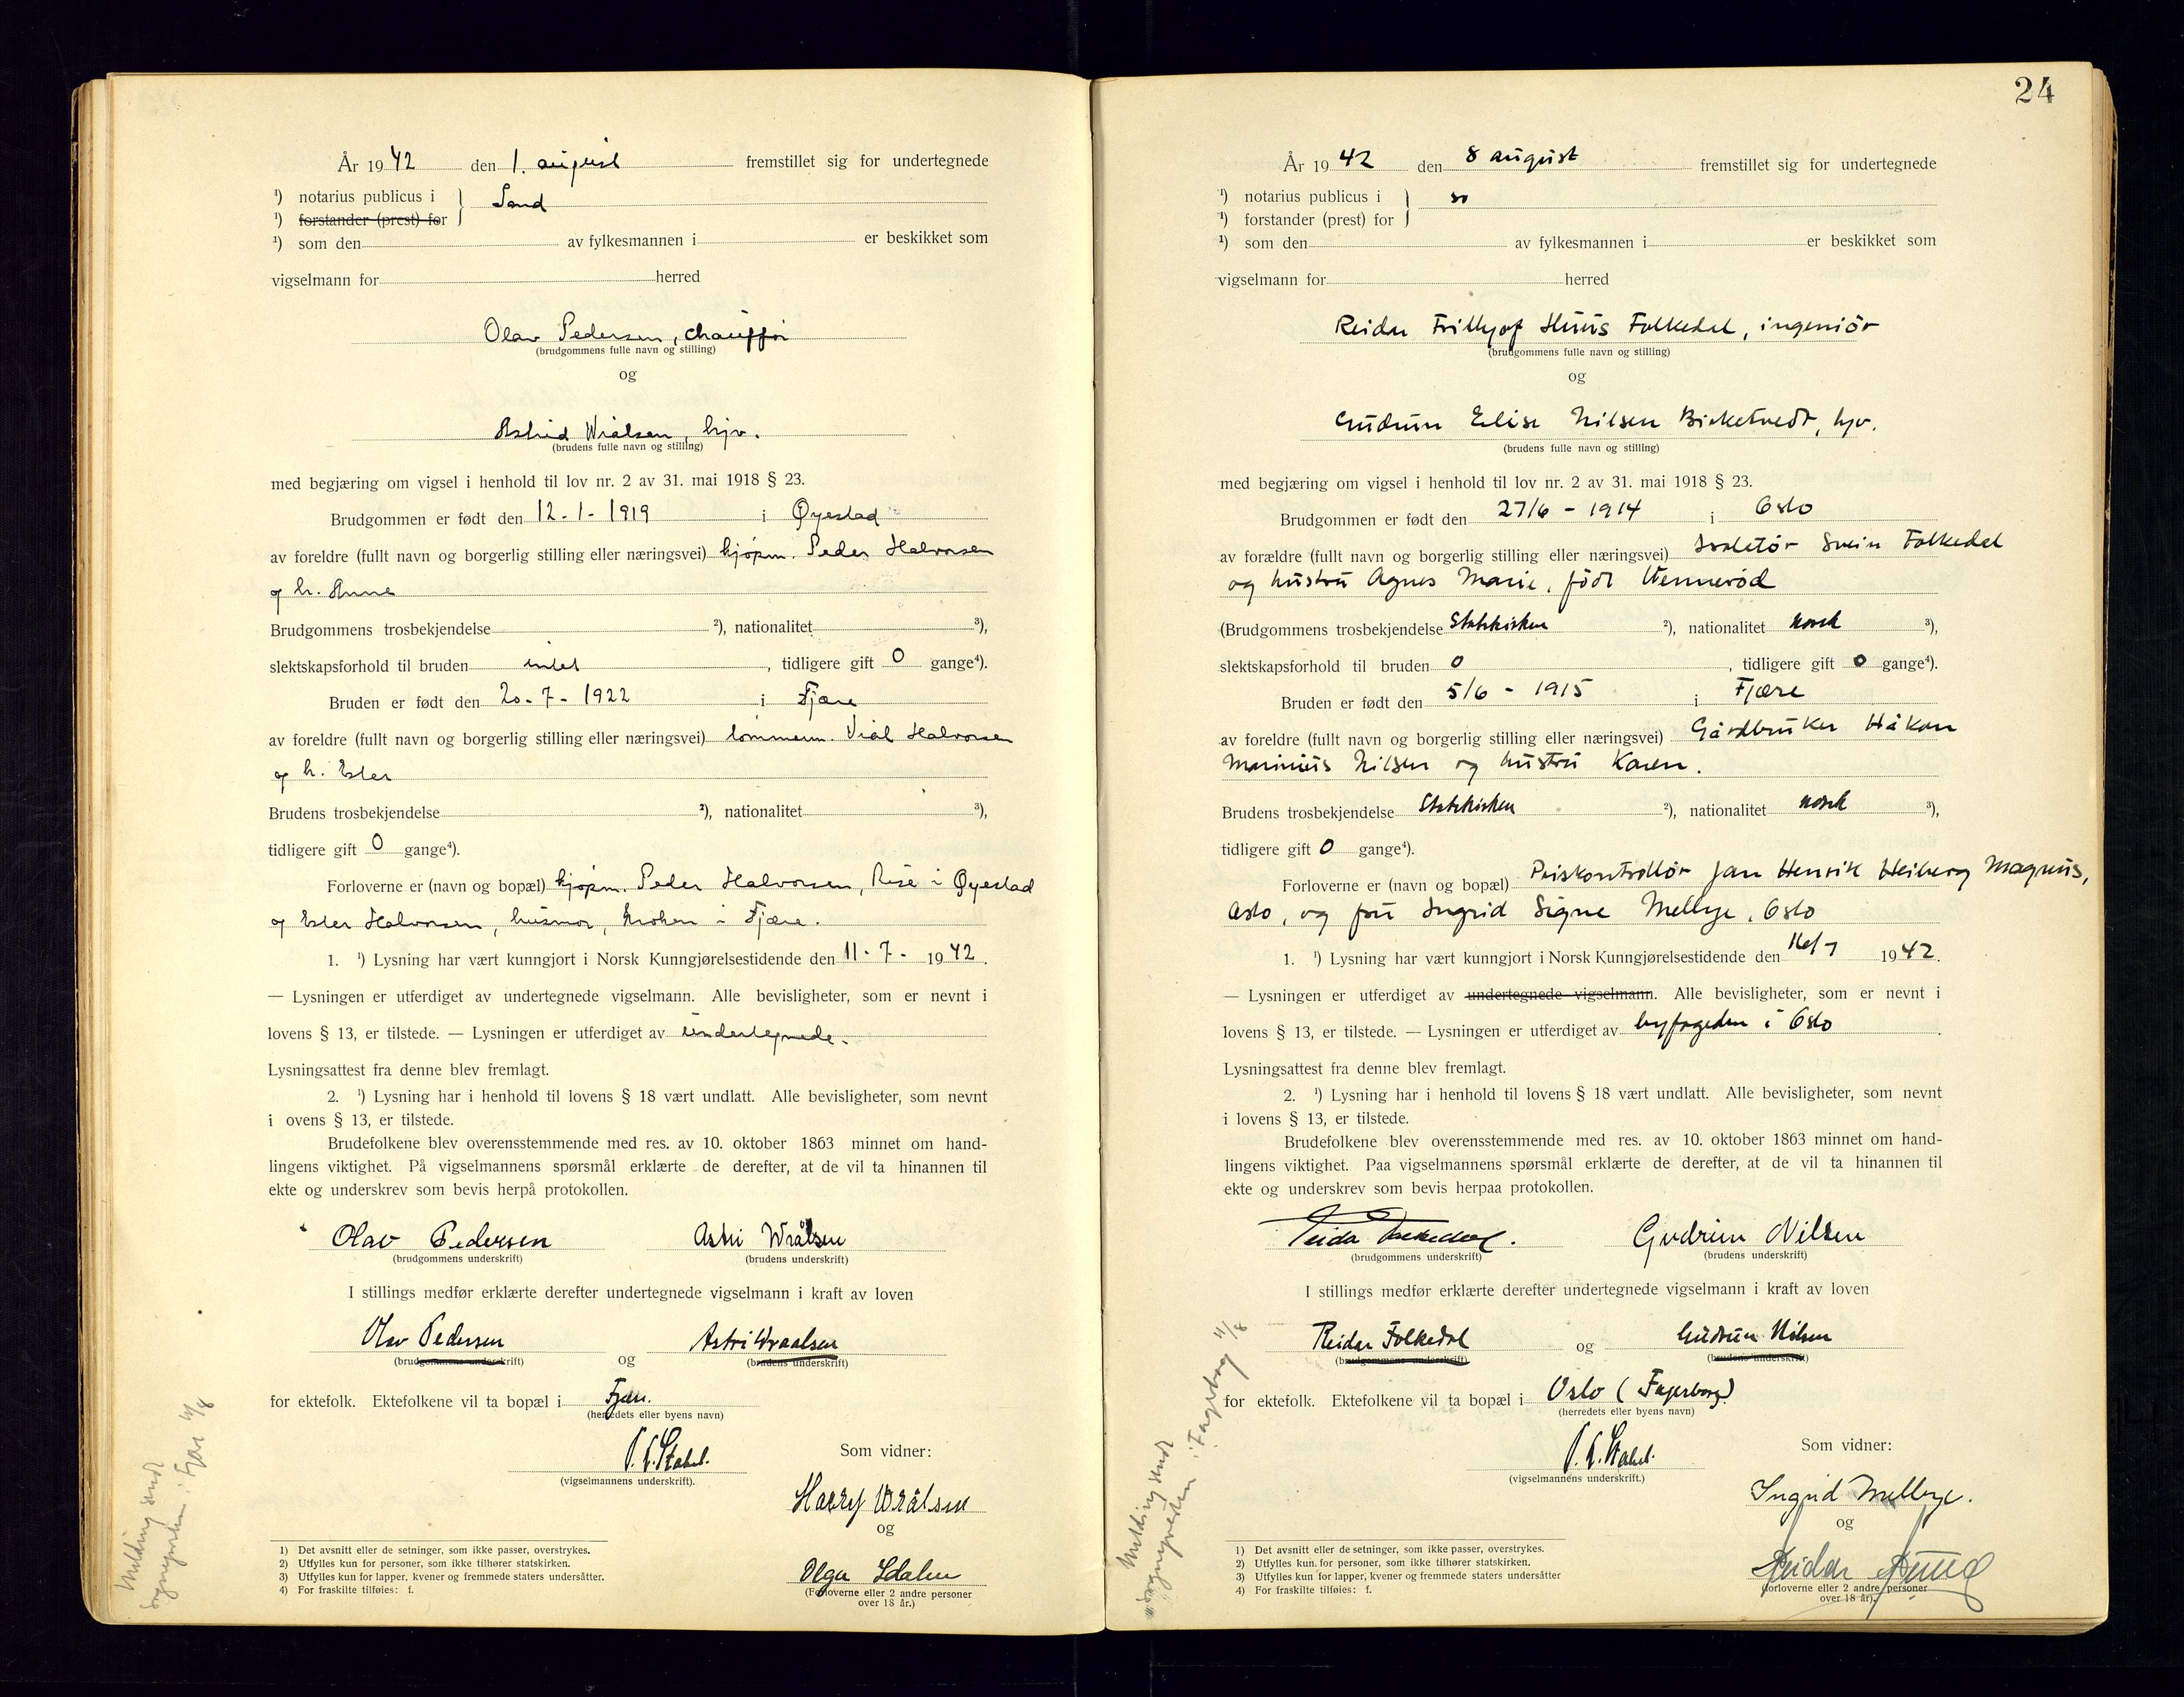 År 1942 den 1. august fremstillet sig for undertegnede
¹) notarius publicus i
Sand
¹) forstander (prest) for
¹) som den av fylkesmannen i er beskikket som
vigselmann for herred
Olav Pedersen, chauffør
(brudgommens fulle navn og stilling)
og
Astrid Wrålsen, hjv.
(brudens fulle navn og stilling)
med begjæring om vigsel i henhold til lov nr. 2 av 31. mai 1918 § 23.
Brudgommen er født den 12-1-1919 i Øyestad
av foreldre (fullt navn og borgerlig stilling eller næringsvei) kjøpm. Peder Halvorsen
og h. Anne
Brudgommens trosbekjendelse ²), nationalitet ³),
slektskapsforhold til bruden intet, tidligere gift 0 gange⁴).
Bruden er født den 20-7-1922 i Fjære
av foreldre (fullt navn og borgerlig stilling eller næringsvei) tømmerm. Vrål Halvorsen
og h. Ester
Brudens trosbekjendelse ²), nationalitet ³),
tidligere gift 0 gange⁴).
Forloverne er (navn og bopæl) kjøpm. Peder Halvorsen, Rise i Øyestad
og Ester Halvorsen, husmor, Kroken i Fjære.
1. ¹) Lysning har vært kunngjort i Norsk Kunngjørelsestidende den 11-7-1942.
— Lysningen er utferdiget av undertegnede vigselmann. Alle bevisligheter, som er nevnt i
lovens § 13, er tilstede. — Lysningen er utferdiget av undertegnede.
Lysningsattest fra denne blev fremlagt.
2. ¹) Lysning har i henhold til lovens § 18 vært undlatt. Alle bevisligheter, som nevnt
i ovens § 13, er tilstede.
Brudefolkene blev overensstemmende med res. av 10. oktober 1863 minnet om hand-
lingens viktighet. På vigselmannens spørsmål erklærte de derefter, at de vil ta hinannen til
ekte og underskrev som bevis herpå protokollen.
Olav Pedersen Astri Wrålsen
(brudgommens underskrift) (brudens underskrift)
I stillings medfør erklærte derefter undertegnede vigselmann i kraft av loven
Olav Pedersen og Astri Wraalsen
(brudgommens underskrift) (brudens underskrift)
for ektefolk. Ektefolkene vil ta bopæl i Fjære.
(herredets eller byens navn)
Stabel.
(vigselmannens underskrift).
Som vidner:
Harry Wrålsen
og
Olga
(Forloverne eller 2 andre personer
over 18 år.)
1) Det avsnitt eller de setninger, som ikke passer, overstrykes.
2) Utfylles kun for personer, som ikke tilhører statskirken.
3) Utfylles kun for lapper, kvener og fremmede staters undersåtter.
4) For fraskilte tilføies: f.
Melding sendt
sognepresten i Fjære
24
År 1942 den 8 august fremstillet sig for undertegnede
¹) notarius publicus i
¹) forstander (prest) for
¹) som den av fylkesmannen i er beskikket som
vigselmann for herred
Reidar Fritjof Huus Folkedal, ingeniør
(brudgommens fulle navn og stilling)
og
Gudrun Elise Nilsen Birketvedt, hjv.
(brudens fulle navn og stilling)
med begjæring om vigsel i henhold til lov nr. 2 av 31. mai 1918 § 23.
Brudgommen er født den 27/6 - 1914 i Oslo
av forældre (fullt navn og borgerlig stilling eller næringsvei) Isoletør Svein Folkedal
og hustru Agnes Marie, født Wennerød
(Brudgommens trosbekjendelse Statskirken ²), nationalitet norsk ³),
slektskapsforhold til bruden 0, tidligere gift 0 gange⁴).
Bruden er født den 5/6 - 1915 i Fjære
av foreldre (fullt navn og borgerlig stilling eller næringsvei) Gårdbruker Håkon
Marinius Nilsen og hustru Karen.
Brudens trosbekjendelse Statskirken ²), nationalitet norsk ³),
tidligere gift 0 gange⁴).
Forloverne er (navn og bopæl) Priskontrollør Jan Henrik Heiberg Magnus,
Oslo, og fru Ingrid Signe Mellbye, Oslo
1. ¹) Lysning har vært kunngjort i Norsk Kunngjørelsestidende den 16/7 1942.
— Lysningen er utferdiget av undertegnede vigselmann. Alle bevisligheter, som er nevnt i
lovens § 13, er tilstede. — Lysningen er utferdiget av byfogeden i Oslo.
Lysningsattest fra denne blev fremlagt.
2. ¹) Lysning har i henhold til lovens § 18 vært undlatt. Alle bevisligheter, som nevnt
i lovens § 13, er tilstede.
Brudefolkene blev overensstemmende med res. av 10. oktober 1863 minnet om hand-
lingens viktighet. Paa vigselmannens spørsmål erklærte de derefter, at de vil ta hinannen til
ekte og underskrev som bevis herpaa protokollen.
Reidar Folkedal. Gudrun Nilsen
(brudgommens underskrift) (brudens underskrift)
I stillings medfør erklærte derefter undertegnede vigselmann i kraft av loven
Reidar Folkedal og Gudrun Nilsen
(brudgommens underskrift) (brudens underskrift)
for ektefolk. Ektefolkene vil ta bopæl i Oslo (Fagerborg)
(herredets eller byens navn)
Stabel.
(vigselmannens underskrift.)
Som vidner:
Ingrid Mellbye.
og
Reidar
(forloverne eller 2 andre personer
over 18 år).
1) Det avsnitt eller de setninger, som ikke passer, overstrykes.
2) Utfylles kun for personer, som ikke tilhører statskirken.
3) Utfylles kun for lapper, kvener og fremmede staters undersåtter
4) For fraskilte tilføies: f.
Melding sendt
sognepresten i Fagerborg 11/8